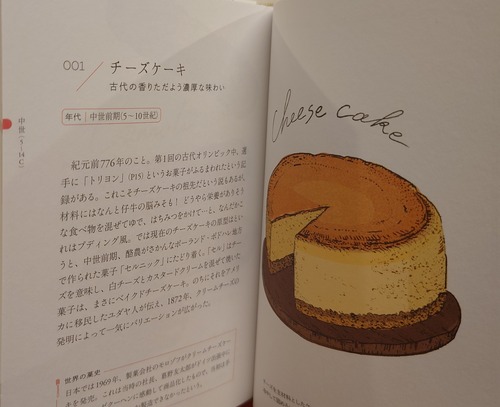 001
チーズケーキ
古代の香りただよう濃厚な味わい
年代 中世前期(5~10世紀)
中世(5~14C)
紀元前776年のこと。第1回の古代オリンピック中、選
手に「トリヨン」(P15)というお菓子がふるまわれたという記
録がある。これこそチーズケーキの祖先だという説もあるが、
材料にはなんと仔牛の脳みそも! どうやら栄養がありそう
な食べ物を混ぜてゆで、はちみつをかけて…と、なんだかこ
れはプディング風。では現在のチーズケーキの原型はとい
うと、中世前期、酪農がさかんなポーランド・ポドハレ地方
で作られた菓子「セルニック」にたどり着く。「セル」はチー
ズを意味し、白チーズとカスタードクリームを混ぜて焼いた
菓子は、まさにベイクドチーズケーキ。のちにそれをアメリ
カに移民したユダヤ人が伝え、1872年、クリームチーズの
発明によって一気にバリエーションが広がった。
世界の菓史
日本では1969年、製菓会社のモロゾフがクリームチーズケー
キを発売。これは当時の社長、葛野友太郎がドイツ出張中に
クーヘンに感動して商品化したもので、当初は
cheese cake